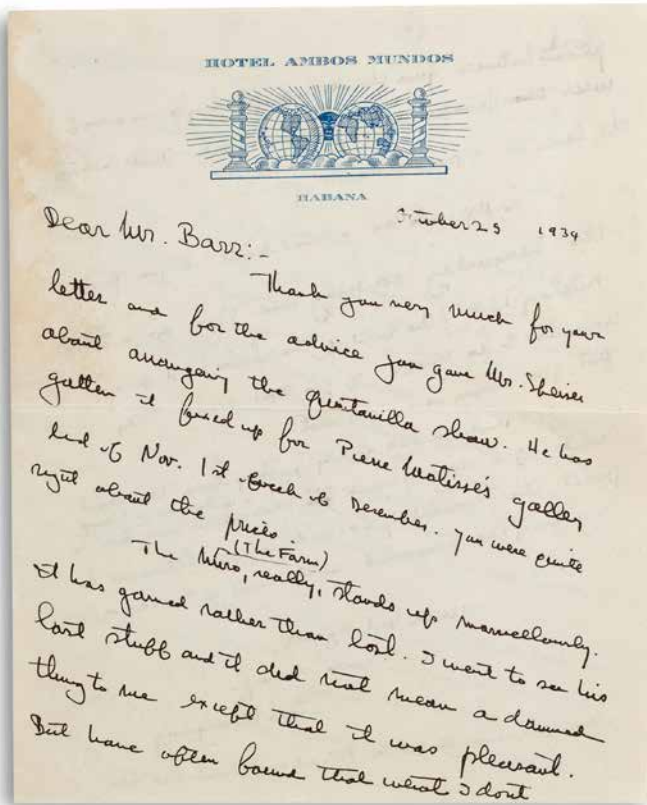 HOTEL AMBOS MUNDOS
HABANA
October 25 1934
Dear Mr. Barr:-
Thank you very much for your
letter and for the advice you gave Mr.
about arranging the Quintanilla show. He has
gotten it fixed up for Pierre Matisse's gallery
End of Nov. 1st week of December. You were quite
right about the prices.
(The Farm)
The Miro, really, stands up marvellously.
It has gained rather than lost. I went to see his
last stuff and it did not mean a damned
thing to me except that it was pleasant.
But have often found that what I dont